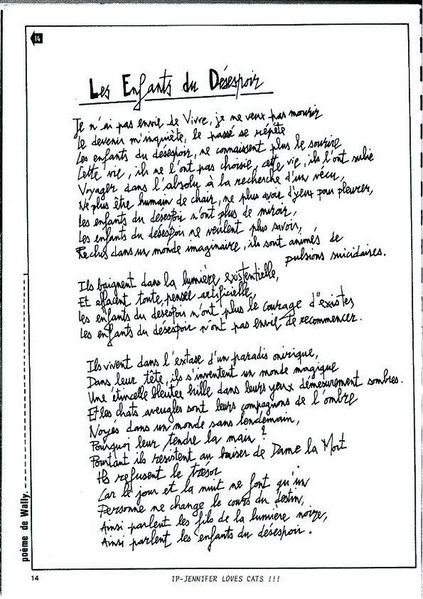 Les Enfants du Désespoir
Je n'ai pas envie de Vivre, je ne veux pas mourir
Le devenir m'inquiète, le passé se répète
Les enfants du désespoir, ne connaissent plus le sourire
Cette vie, ils ne l'ont pas choisie, cette vie, ils l'ont subie
Voyager dans l'absolu à la recherche d'un vécu,
Ne plus être humain de chair, ne plus avoir d'yeux pour pleurer,
Les enfants du désespoir n'ont plus de miroir,
Les enfants du désespoir ne veulent plus savoir,
Reclus dans un monde imaginaire, ils sont animés de
pulsions suicidaires.
Ils baignent dans la lumière existentielle,
Et effacent toute pensée artificielle,
Les enfants du désespoir n'ont plus le courage d'exister
Les enfants du désespoir n'ont pas envie de recommencer.
Ils vivent dans l'extase d'un paradis onirique,
Dans leur tête, ils s'inventent un monde magique
Une étincelle bleutée brille dans leurs yeux démesurément sombres.
Et les chats aveugles sont leurs compagnons de l'ombre
Noyés dans un monde sans lendemain,
Pourquoi leur tendre la main ?
Pourtant ils résistent au baiser de Dame la Mort
Ils refusent le trésor
Car le jour et la nuit ne font qu'un
Personne ne change le cours du destin,
Ainsi parlent les fils de la lumière noire,
Ainsi parlent les enfants du désespoir.
poème de Wally
14
IP-JENNIFER LOVES CATS !!!